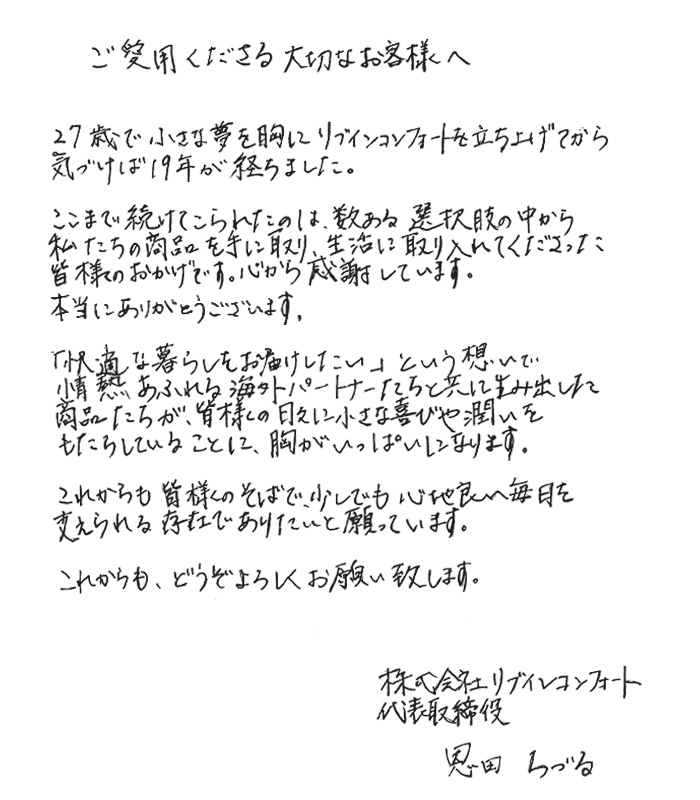 ご愛用くださる大切なお客様へ
27歳で小さな夢を胸にリブインコンフォートを立ち上げてから
気づけば19年が経ちました。
ここまで続けてこられたのは、数ある選択肢の中から
私たちの商品を手に取り、生活に取り入れてくださった
皆様のおかげです。心から感謝しています。
本当にありがとうございます。
「快適な暮らしをお届けしたい」という想いで
情熱あふれる海外パートナーたちと共に生み出した
商品たちが、皆様の日々に小さな喜びや潤いを
もたらしていることに、胸がいっぱいになります。
これからも皆様のそばで、少しでも心地良い毎日を
変えられる存在でありたいと願っています。
これからも、どうぞよろしくお願い致します。
株式会社リブインコンフォート
代表取締役
恩田 ちづる